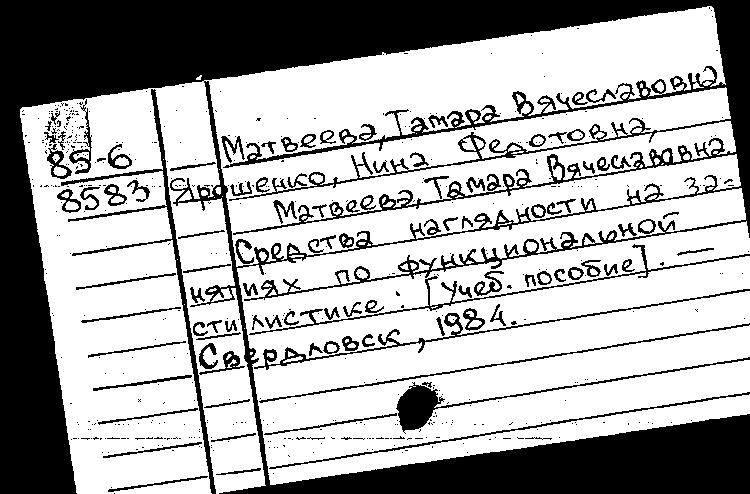 85-6
8583
Матвеева, Тамара Вячеславовна.
Ярошенко, Нина Федотовна,
Матвеева, Тамара Вячеславовна.
Средства наглядности на за-
нятиях по функциональной
стилистике: [Учеб. пособие]. —
Свердловск, 1984.